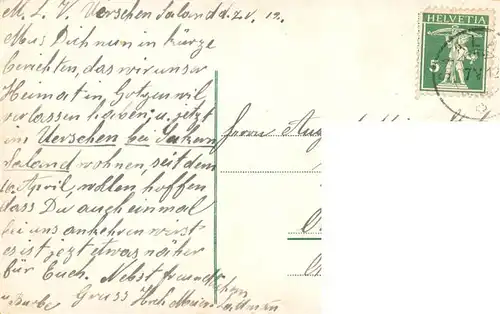 M. L. V. Uerschen Saland d. 7. V. 12.
Muss Dich nun in kürze
berichten, das wir unser
Heimat in, Gotzenwil
verlassen haben, u. jetzt
im Uerschen bei
Saland wohnen, seit dem
10. April, wollen hoffen
dass Du auch einmal
bei uns ankehren wirst
es ist jezt etwas näher
für Euch. Nebst freundlichem
Gruss
HELVETIA
5
Herrn